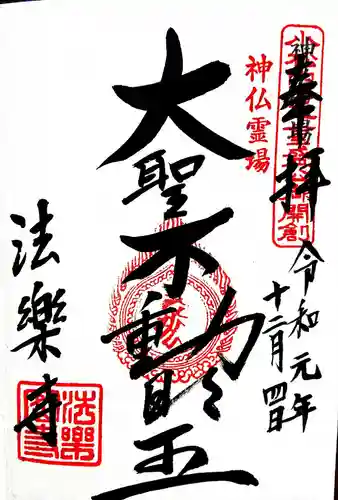 奉拝
令和元年
十二月四日
神仏霊場
大聖不動明王
法樂寺
法樂